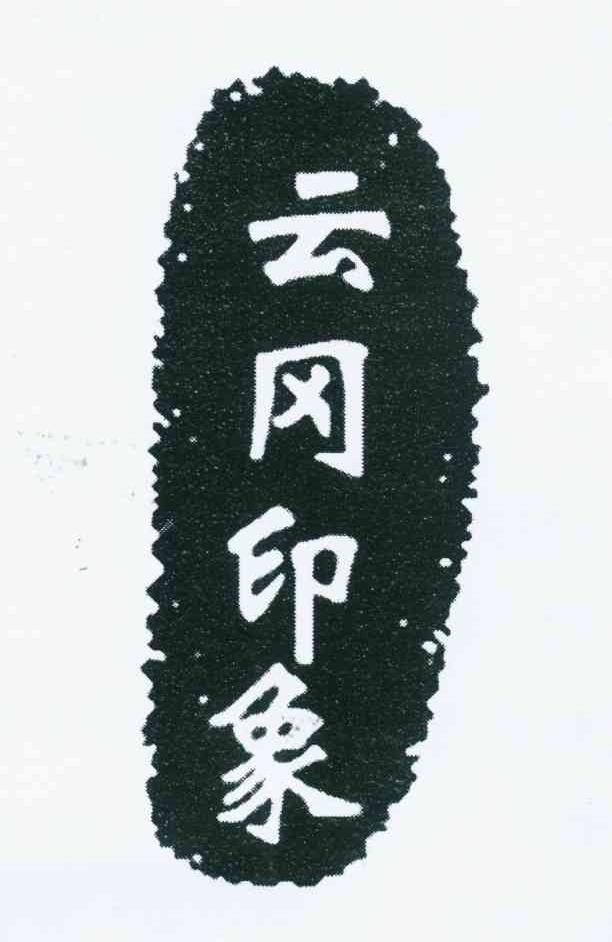 云冈印象